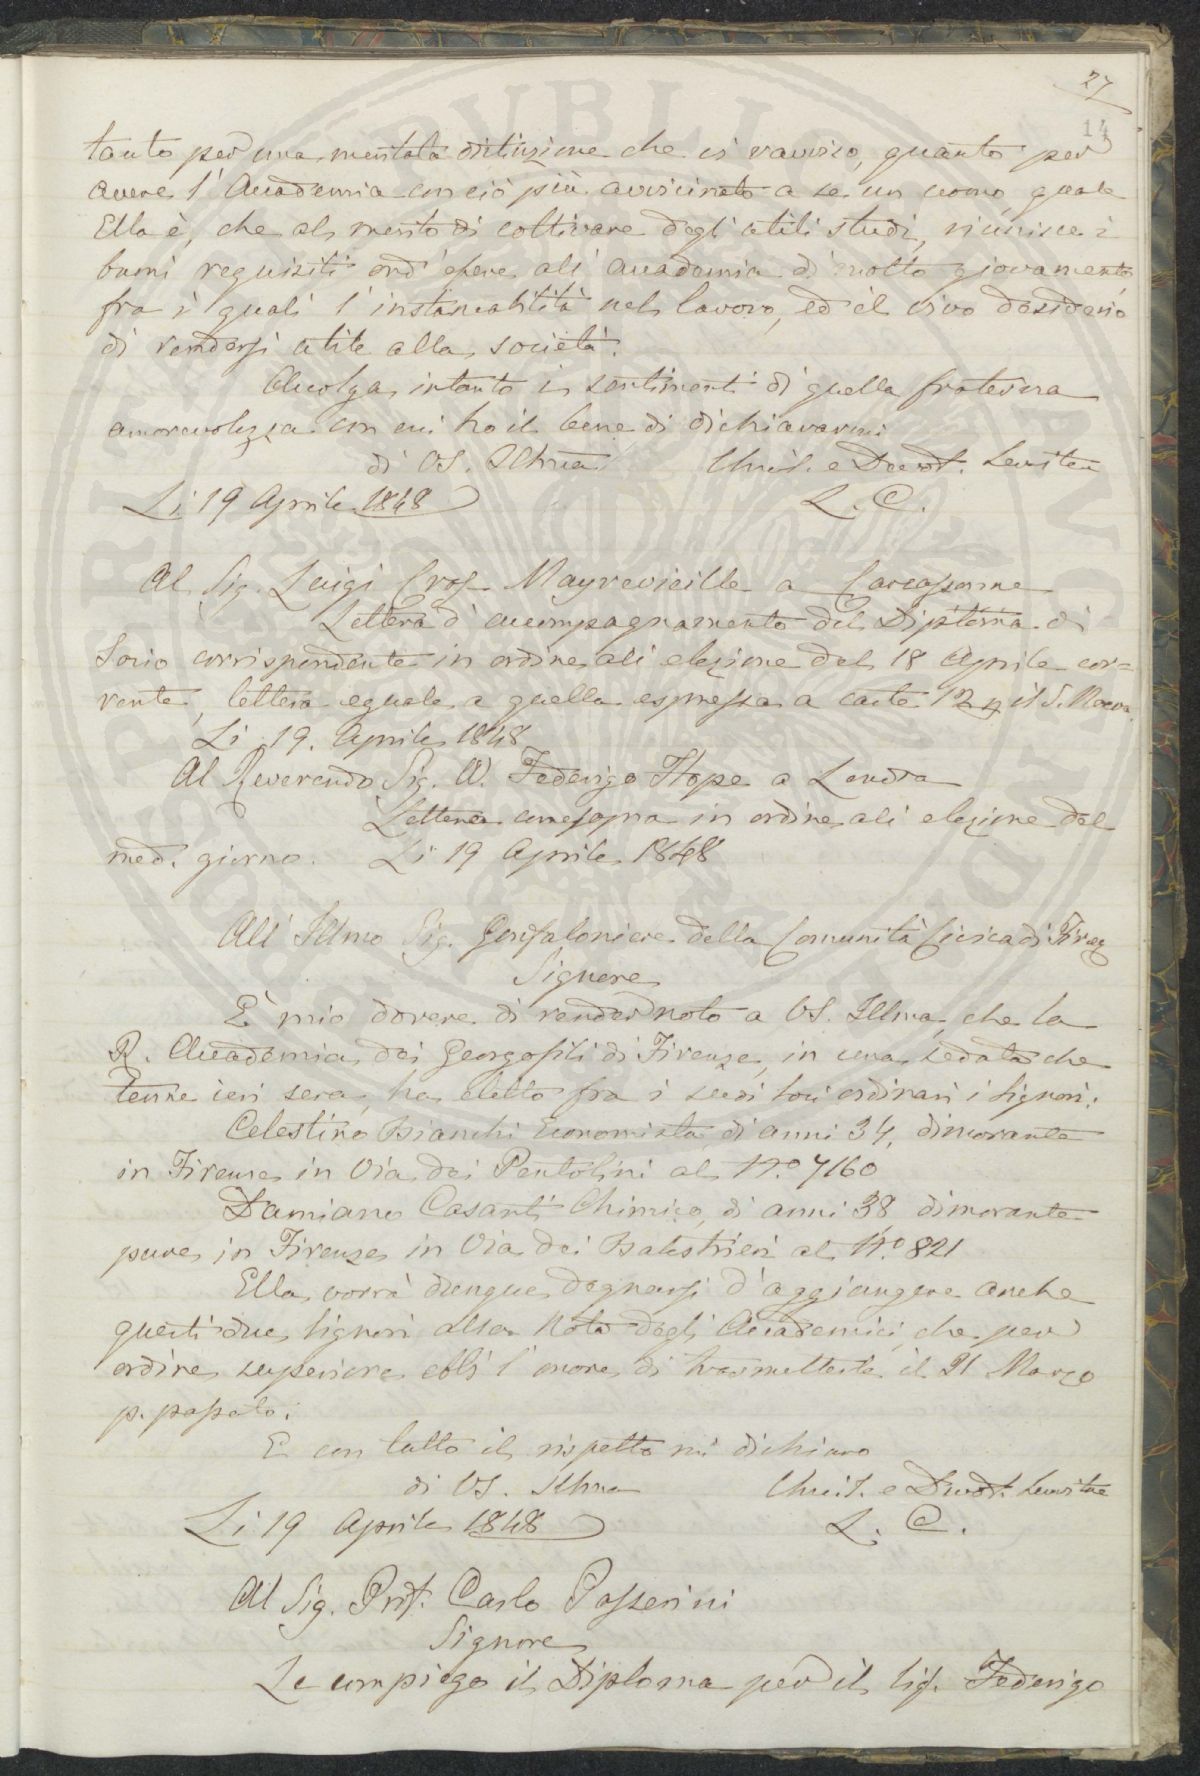 27
14
tanto per una meritata distinzione che ci ravviso, quanto per
avere l'Accademia con ciò più avvicinato a se un uomo, quale
Ella è, che al merito di coltivare degl'utili studi, riunisce i
buoni requisiti ond'essere all'accademia di molto giovamento,
fra i quali l'instancabilità nel lavoro, ed il vivo desiderio
di rendersi utile alla società.
Accolga intanto i sentimenti di quella fratesca
amorevolezza con cui ho il bene di dichiararmi
di VS. Illma Umil. e Devot. Servitore
Li 19 Aprile 1848 L. C.
Al Sig. Luigi Cros Mayrevieille a Carcassonne
Lettera d'accompagnamento del Diploma di
Socio corrispondente in ordine all'elezione del 18 Aprile cor=
rente, lettera eguale a quella espressa a carte 12
Li 19. Aprile 1848
Al Reverendo Sig. W. Federigo Hope a Londra
Lettera come sopra in ordine all'elezione del
med. giorno. Li 19 Aprile 1848
All'Illmo Sig. Gonfaloniere della Comunità Civica di Firenze
Signore
È mio dovere di render noto a VS. Illma, che la
R. Accademia dei Georgofili di Firenze, in una seduta che
tenne ieri sera, ha eletto fra i suoi soci ordinari i Signori:
Celestino Bianchi Economista di anni 34, dimorante
in Firenze in Via dei Pentolini al N.o 7160
Damiano Casanti Chimico, di anni 38 dimorante
pure in Firenze in Via dei Balestrieri al N.o 821
Ella vorrà dunque degnarsi d'aggiungere anche
questi due Signori alla Nota degli Accademici, che per
ordine superiore ebbi l'onore di trasmetterle il 31 Marzo
p. passato.
E con tutto il rispetto mi dichiaro
di VS. Illma Umil. e Devot. Servitore
Li 19 Aprile 1848 L. C.
Al Sig. Prof. Carlo Passerini
Signore
Le compiego il Diploma per il Sig. Federigo